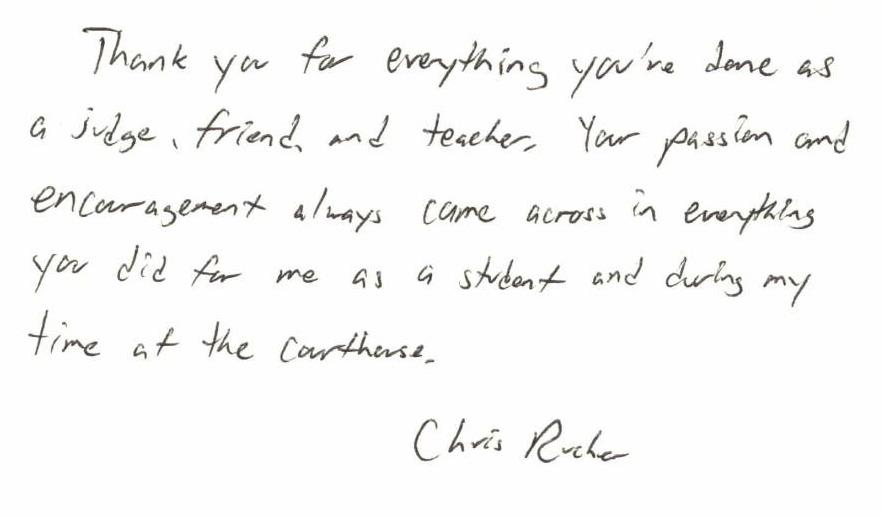 Thank you for everything you're done as
a judge, friend, and teacher. Your passion and
encouragement always came across in everything
you did for me as a student and during my
time at the courthouse.
Chris